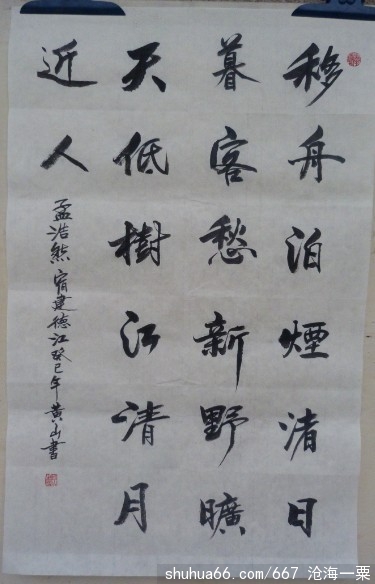 移舟泊煙渚日
暮客愁新野曠
天低樹江清月
近人
孟浩然宿建德江癸巳年黄山書
shuhua66.com/667 沧海一粟